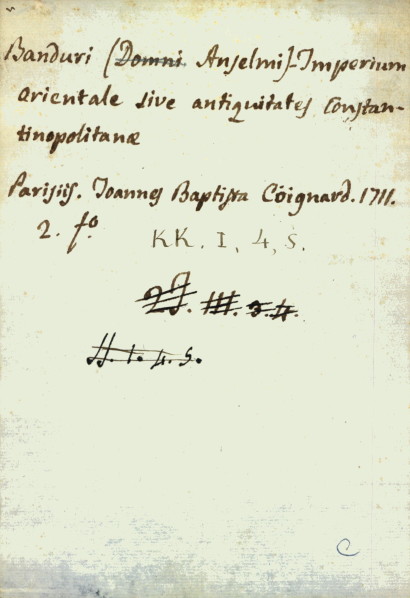 Banduri (Domni Anselmi)-Imperium
orientale sive antiquitates Constan-
tinopolitanæ
Parisiis. Joannes Baptista Coignard. 1711.
2. fº
KK. I, 4, 5.
III. 3. 4.
1. 4. 5.